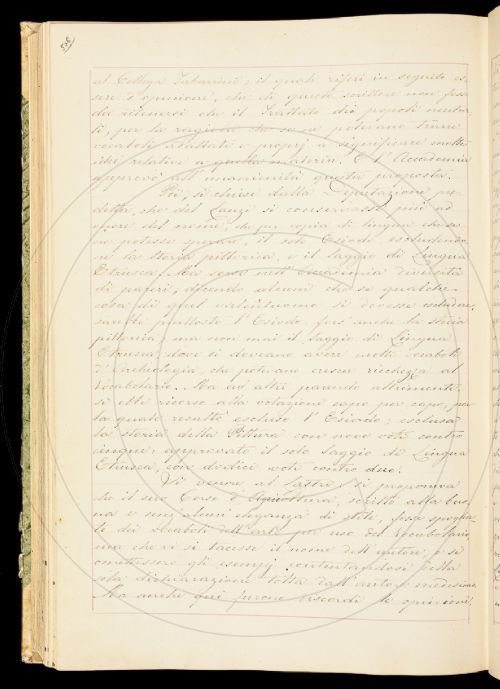 al Collega Tabarrini; il quale riferì in seguito es-
sere d'opinione, che di questo scrittore non fosse
da ritenersi che il Trattato dei popoli
per la ragione che se ne potevano trarre
vocaboli adattati e proprj a significare molte
idee relative a quella materia. E l'Accademia
approvò all'unanimità questa proposta.
Più, si chiese dalla Deputazione pre-
detta, che del Lanzi si conservasse, più ad
onore del nome, che per copia di lingua che se
ne potesse sperare, il solo Esiodo, escludendo-
ne la Storia pittorica, e il Saggio di Lingua
Etrusca. Ma sorse nell'Accademia diversità
di pareri, dicendo alcuni che se qualche
cosa di quel valentuomo si dovesse escludere,
sarebbe piuttosto l'Esiodo, fors'anche la Storia
pittorica, ma non mai il Saggio di Lingua
Etrusca, dove si doveano avere molti vocaboli
d'Archeologia, che potevano crescer ricchezza al
Vocabolario. Ma ad altri parendo altrimenti,
si ebbe ricorso alla votazione capo per capo, per
la quale resultò escluso l'Esiodo; esclusa
la Storia della Pittura con nove voti contro
cinque; approvato il solo Saggio di Lingua
Etrusca, con dodici voti contro due.
Si venne al Lastri: si proponeva
che il suo Corso d'Agricoltura, scritto alla buo-
na e senz'alcuna eleganza di stile, fosse spoglia-
to dei vocaboli dell'arte per uso del Vocabolario,
ma che vi si tacesse il nome dell'autore, e si
omettessero gli esempj, contentandosi della
sola dichiarazione tolta dall'autore medesimo.
Ma anche qui furono discordi le opinioni.